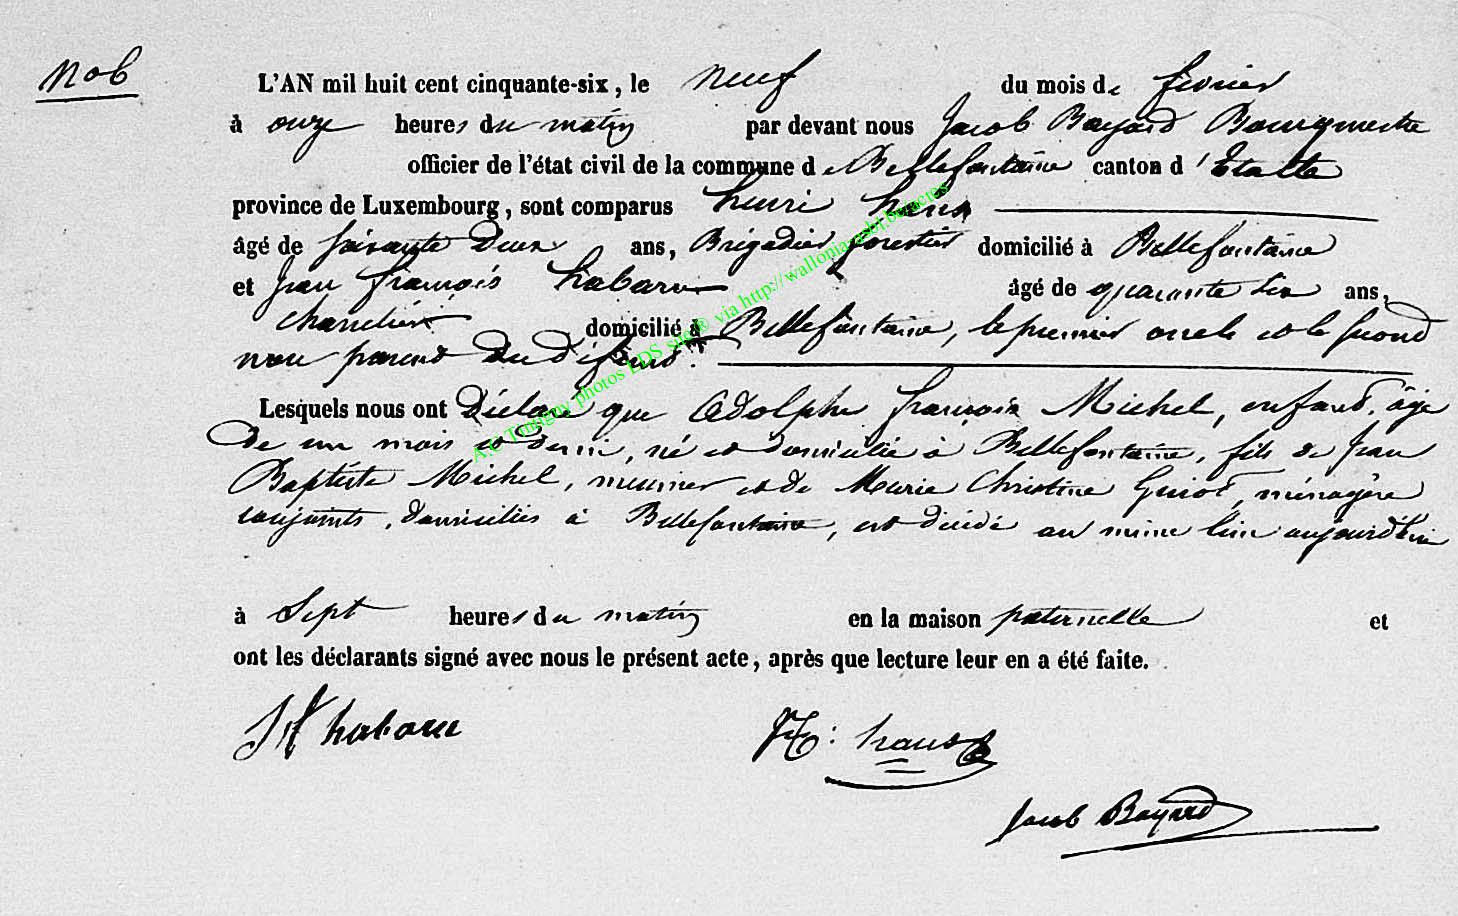 N° 6
L'AN mil huit cent cinquante-six, le neuf du mois de février
à onze heures du matin par devant nous Jacob Bayard Bourgmestre
officier de l'état civil de la commune de Bellefontaine canton d'Etalle
province de Luxembourg, sont comparus Henri
âgé de soixante deux ans, Brigadier forestier domicilié à Bellefontaine
et Jean françois habaru âgé de quarante six ans,
domicilié à Bellefontaine, le premier oncle et le second
non parent du défunt.
Lesquels nous ont déclaré que Adolphe françois Michel, enfant, âgé
de un mois et demi, né et domicilié à Bellefontaine, fils de Jean
Baptiste Michel, meunier et de Marie Christine Guiot, ménagère
conjoints, domiciliés à Bellefontaine, est décédé au même lieu aujourd'hui
à sept heures du matin en la maison paternelle et
ont les déclarants signé avec nous le présent acte, après que lecture leur en a été faite.
habaru
Jacob Bayard
A.E photos LDS sur ® via http://walloniaasbl.be/actes